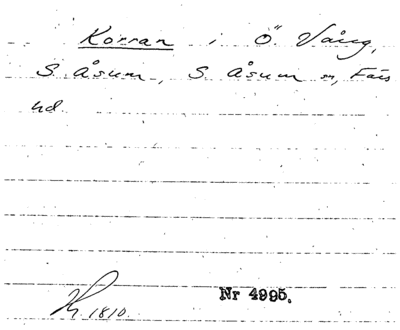 Korran i Ö. Vång,
S. Åsum, S. Åsum sn, Färs
hd.
K. 1810. Nr 4995.